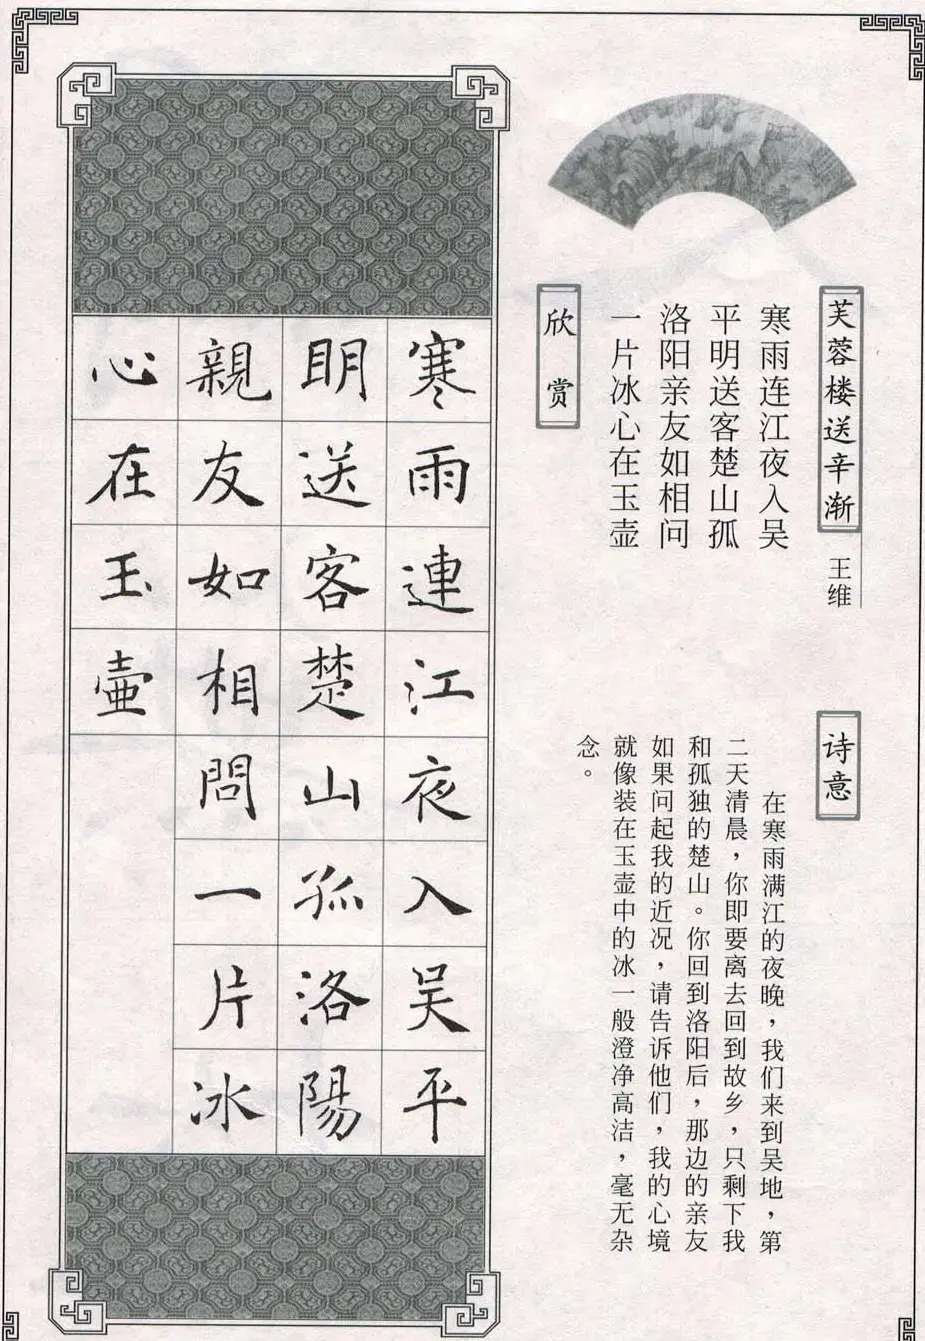 芙蓉楼送辛渐
王维
寒雨连江夜入吴
平明送客楚山孤
洛阳亲友如相问
一片冰心在玉壶
欣赏
诗意
在寒雨满江的夜晚，我们来到吴地，第
二天清晨，你即要离去回到故乡，只剩下我
和孤独的楚山。你回到洛阳后，那边的亲友
如果问起我的近况，请告诉他们，我的心境
就像装在玉壶中的冰一般澄净高洁，毫无杂
念。
寒雨連江夜入吴平
明送客楚山孤洛陽
親友如相問一片冰
心在玉壷